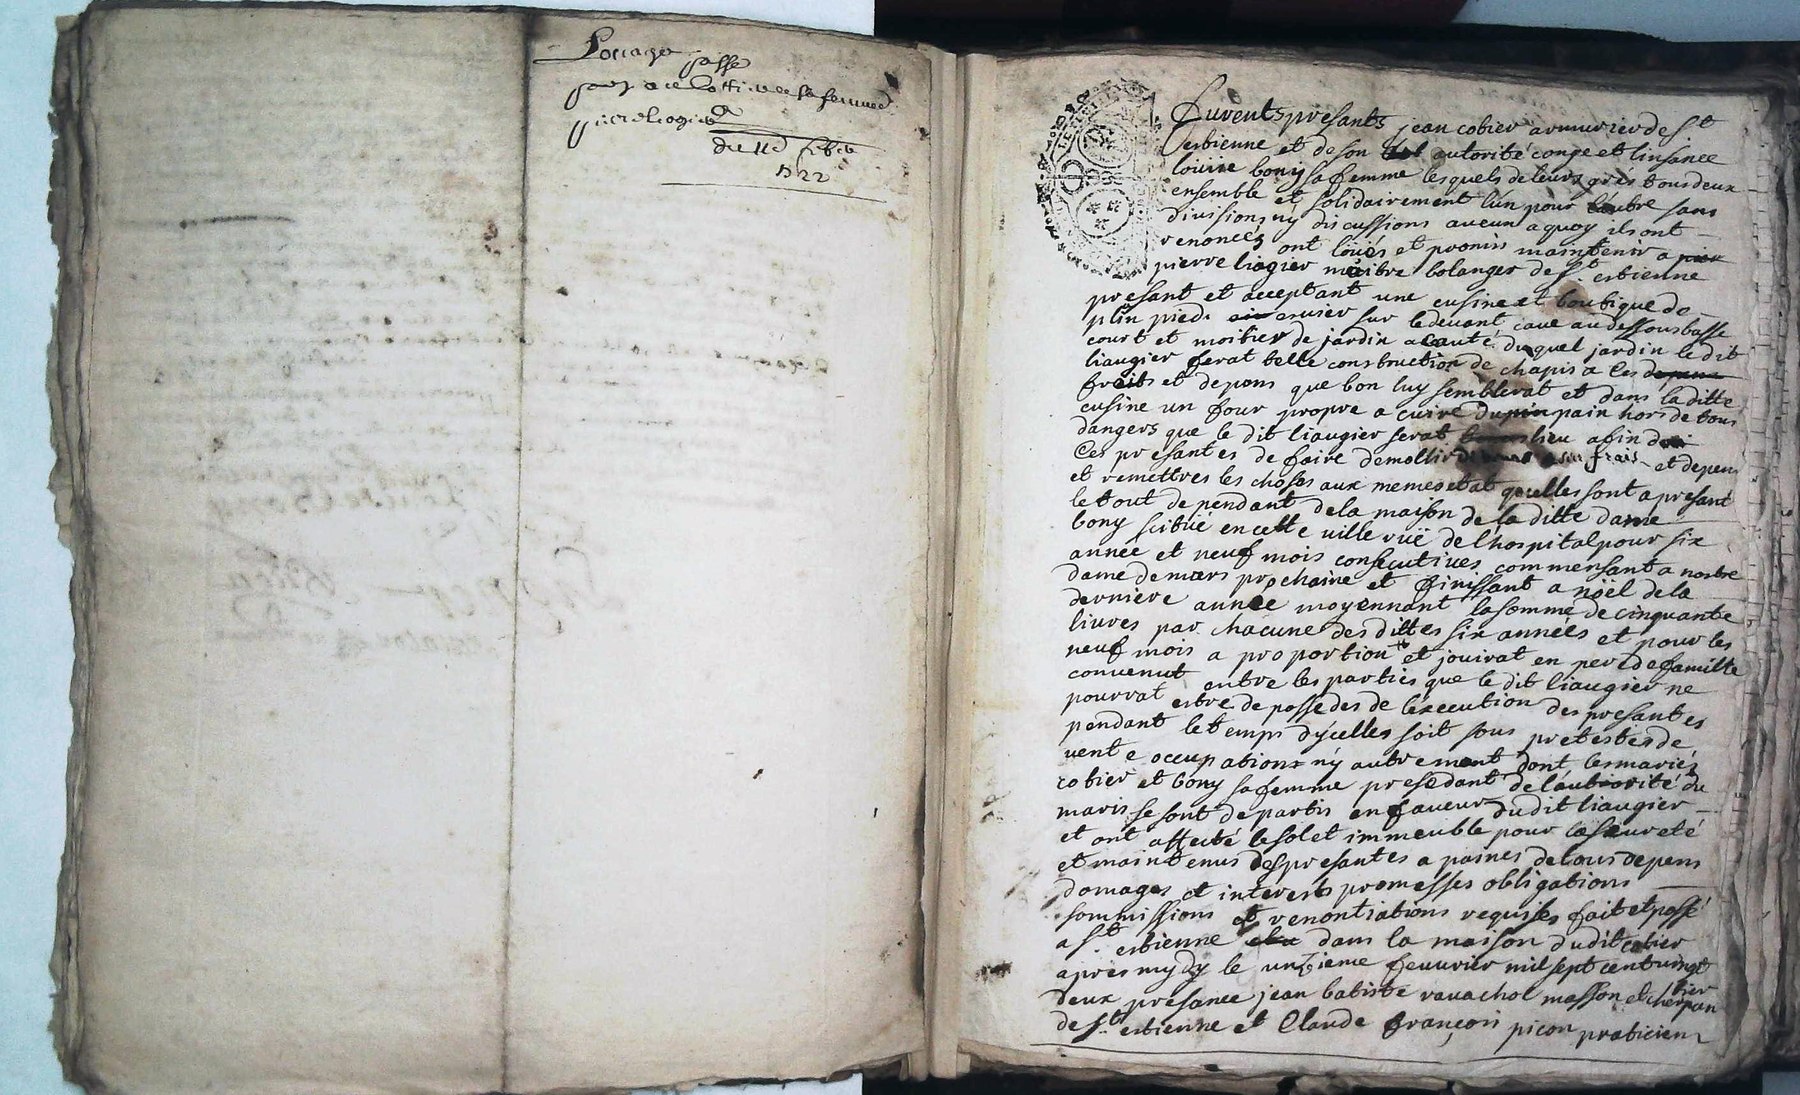 Louage passé
du 11e febr
1722
furents presants jean cobier armurier de St
estienne et de son autorité conge et linsance
louise bony sa femme lesquels de leurs grés tous deux
ensemble et solidairement lun pour lautre sans
divisions ny discussions aucun a quoy ils ont
renoncés ont loüés et promis maintenir a
pierre liogier maitre bolanger de St estienne
presant et acceptant une cusine et boutique de
plin pied esvier sur le devant cave au dessous basse
court et moitier de jardin a cauté duquel jardin le dit
liaugier ferat telle construction de chapis a les
fraits et depans que bon luy semblerat et dans la ditte
cusine un four propre a cuire du pain hors de tous
dangers que le dit liaugier serat lieu a fin
Ces presantes de faire demollir frais et depens
et remettres les choses aux memes etat quelles sont a presant
le tout dependant de la maison de la ditte dame
bony scitüé en cette ville rüe de lhospital pour six
année et neuf mois consecutives commensant a nostre
dame de mars prochaine et finissant a nöel de la
derniere année moyennant la somme de cinquante
livres par chacune des dittes six années et pour les
neuf mois a proportion et jouirat en pere de famille
convenut entre les parties que le dit liaugier ne
pourrat estre deposseder de lexecution des presantes
pendant le temps dycelles soit sous pretestes de
vente occupations ny autrement dont les mariés
cobier et bony sa femme presedant de lautorité du
maris se sont departis en faveur dudit liaugier
et ont affecté le sol et immeuble pour la seureté
et maintenus des presantes a paines de tous depens
domages et interests promesses obligations
sommissions et renontiations requises fait et passé
a St estienne dans la maison dudit cobier
apres mydy le unzieme feuvrier mil sept cent vingt
deux presance jean batiste ravachol masson et cherpantier
de St estienne et Claude françois picon praticien